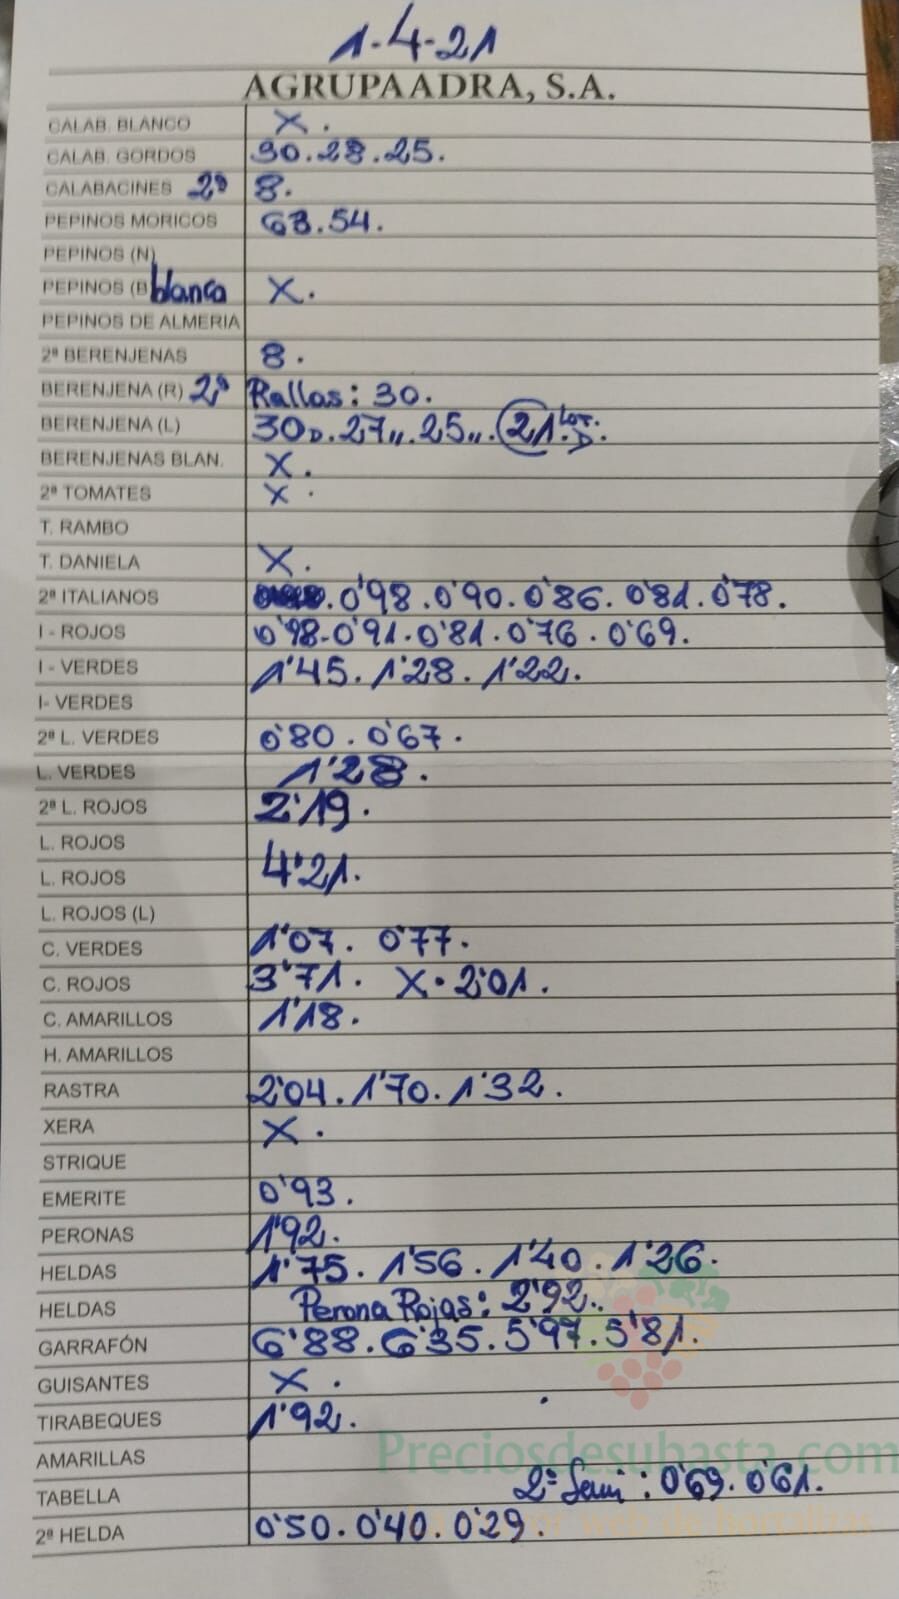 1-4-21
AGRUPAADRA, S.A.
CALAB. BLANCO X.
CALAB. GORDOS 30.28.25.
CALABACINES 2ª 8.
PEPINOS MORICOS 63.54.
PEPINOS (N)
PEPINOS (B blanca X.
PEPINOS DE ALMERIA
2ª BERENJENAS 8.
BERENJENA (R) 2ª Rallas: 30.
BERENJENA (L) 30D.27,,.25,,.21.
BERENJENAS BLAN. X.
2ª TOMATES X.
T. RAMBO
T. DANIELA X.
2ª ITALIANOS 0'98.0'90.0'86.0'81.0'78.
I - ROJOS 0'98-0'91.0'81.0'76.0'69.
I - VERDES 1'45.1'28.1'22.
I- VERDES
2ª L. VERDES 0'80.0'67.
L. VERDES 1'28.
2ª L. ROJOS 2'19.
L. ROJOS
L. ROJOS 4'21.
L. ROJOS (L)
C. VERDES 1'07. 0'77.
C. ROJOS 3'71. X.2'01.
C. AMARILLOS 1'18.
H. AMARILLOS
RASTRA 2'04.1'70.1'32.
XERA X.
STRIQUE
EMERITE 0'93.
PERONAS 1'92.
HELDAS 1'75.1'56.1'40.1'26.
HELDAS Perona Rojas: 2'92.
GARRAFÓN 6'88.6'35.5'97.5'81.
GUISANTES X.
TIRABEQUES 1'92.
AMARILLAS
Preciosdesubasta.com
TABELLA 2ª Semi: 0'69.0'61.
2ª HELDA 0'50.0'40.0'29.
web de hortalizas